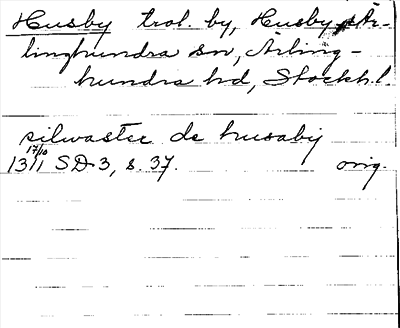 Husby trol. by, Husby Är-
linghundra sn, Ärling-
hundra hd, Stockh.l.
silwaster de husaby
17/10
1311 SD 3, s. 37. orig.